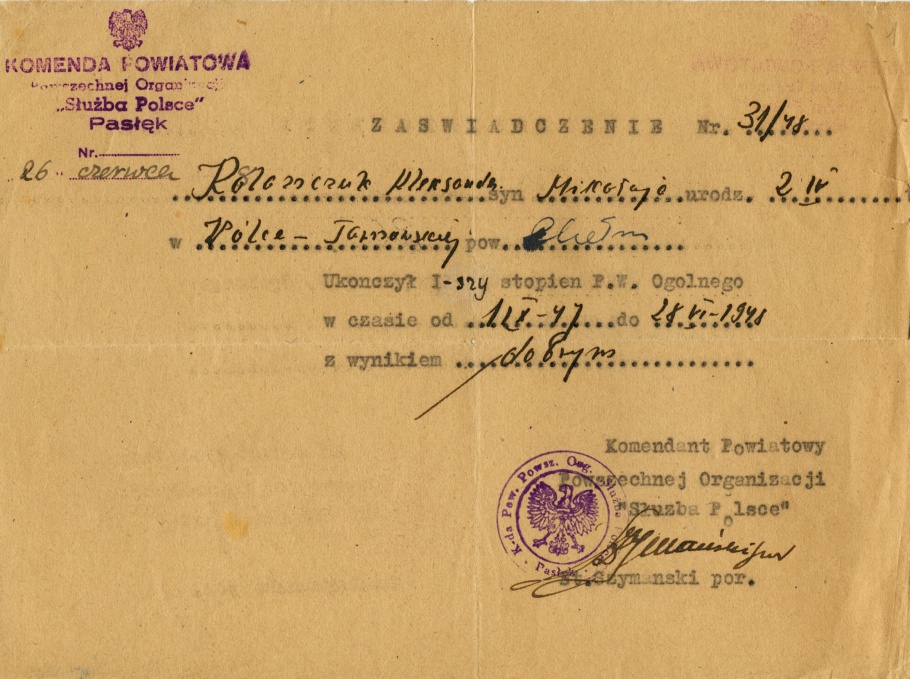 KOMENDA POWIATOWA
Powszechnej Organizacji
„Służba Polsce"
Pasłęk
ZASWIADCZENIE Nr. 31/48
Nr.
26 czerwca
Aleksander syn Mikołaja urodz. 2 IV
w Wólce - Tarnowskiej pow. Chełm
Ukonczył I-szy stopien P.W. Ogolnego
w czasie od 1 IX-47 do 28 VI-1948
z wynikiem dobrym
Komendant Powiatowy
Powszechnej Organizacji
"Służba Polsce"
K-da Pow. Powsz. Org. Służba Pasłęk
St.Szymanski por.